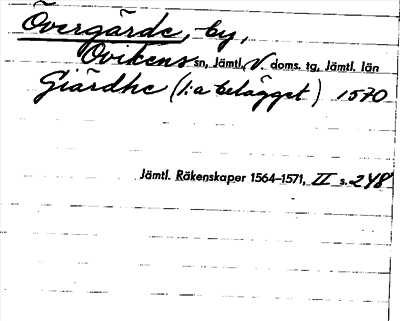 Övergärde, by,
Ovikens sn, Jämtl. V. doms. tg, Jämtl. län
Giärdhe (1:a belägget) 1570
Jämtl. Räkenskaper 1564–1571, II s. 248